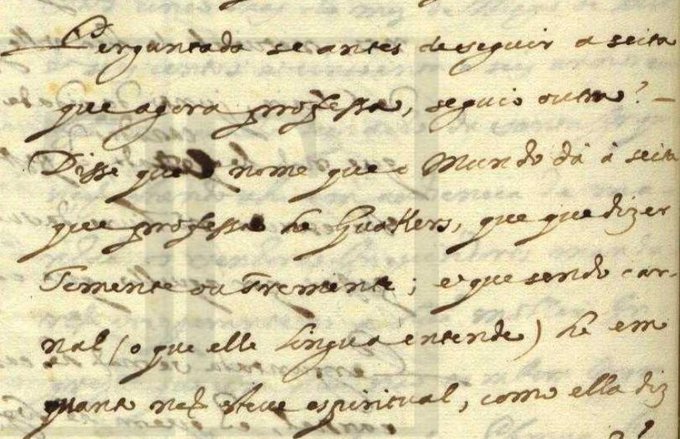 Perguntada se antes de seguir a seita
que agora professa, seguio outra? –
Disse que o nome que o Mundo dá á seita
que professa he Quakers, que quer dizer
Temente ou Tremente; e que sendo car-
nal (o que elle lingua entende) he em
quanto não esteve espiritual, como ella diz